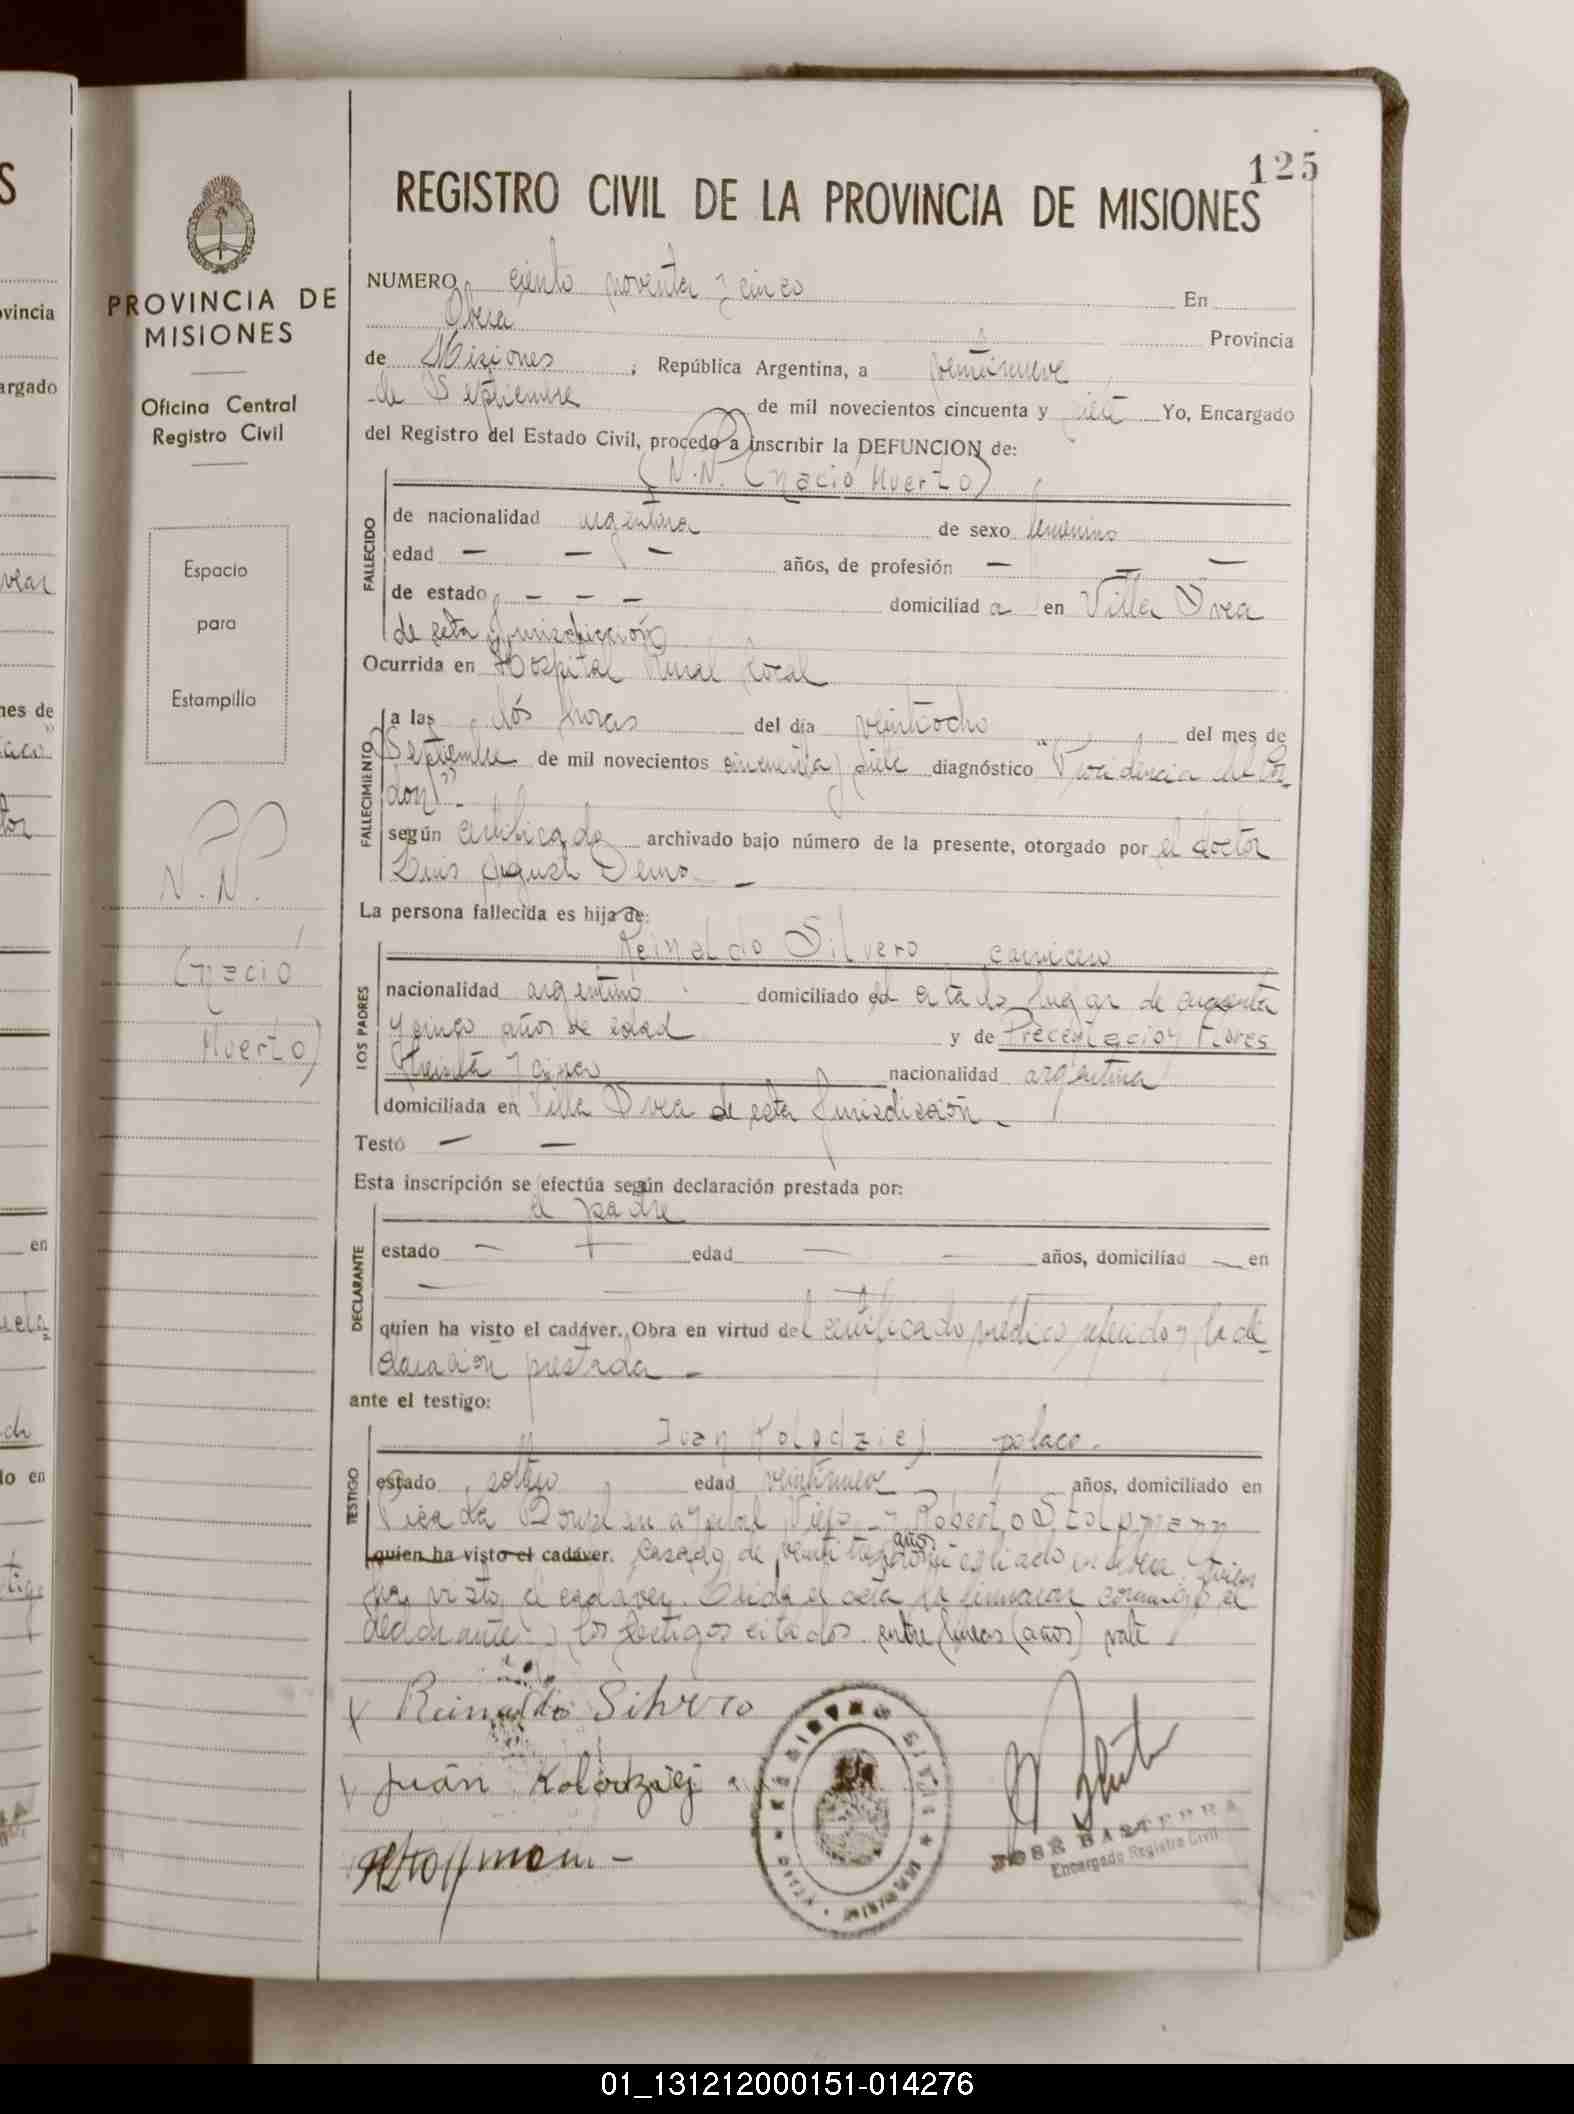 125
REGISTRO CIVIL DE LA PROVINCIA DE MISIONES
PROVINCIA DE
MISIONES
Oficina Central
Registro Civil
Espacio
para
Estampilla
N.N.
(nació
Muerto)
NUMERO ciento noventa y cinco En
Oberá Provincia
de Misiones ; República Argentina, a veintinueve
de Septiembre de mil novecientos cincuenta y siete Yo, Encargado
del Registro del Estado Civil, procedo a inscribir la DEFUNCION de:
N.N. (nació Muerto)
FALLECIDO
de nacionalidad argentina de sexo femenino
edad — — — años, de profesión — — —
de estado — — — domiciliad a en Villa Svea
de esta Jurisdicción
Ocurrida en Hospital Rural local
FALLECIMIENTO
a las dós horas del día veintiocho del mes de
Septiembre de mil novecientos cincuenta y siete diagnóstico "Procidencia del Cor-
don" -
según certificado archivado bajo número de la presente, otorgado por el doctor
Luis August —
La persona fallecida es hija de:
LOS PADRES
Reinaldo Silvero carnicero
nacionalidad argentino domiciliado en esta de
y cinco años de edad y de Precentacion Flores
treinta y cinco nacionalidad argentina
domiciliada en Villa Svea de esta Jurisdicción -
Testó — —
Esta inscripción se efectúa según declaración prestada por:
DECLARANTE
el padre
estado — — edad — — años, domiciliad — en
— — —
quien ha visto el cadáver. Obra en virtud del certificado médico referido y la de-
claración prestada -
ante el testigo:
TESTIGO
Juan Kolodziej polaco.
estado soltero edad veintinueve años, domiciliado en
Picada Viejo y Roberto
quien ha visto el cadáver. casado de años Quien
ha visto el cadaver. Leida el acta la firmaron conmigo el
declarante y los testigos citados. entre lineas (años) vale
Reinaldo Silvero
Juán Kolodziej
REGISTRO CIVIL
MISIONES
JOSE BASTERRA
Encargado Registro Civil
vincia
argado
nes de
en
lo en
01_131212000151-014276